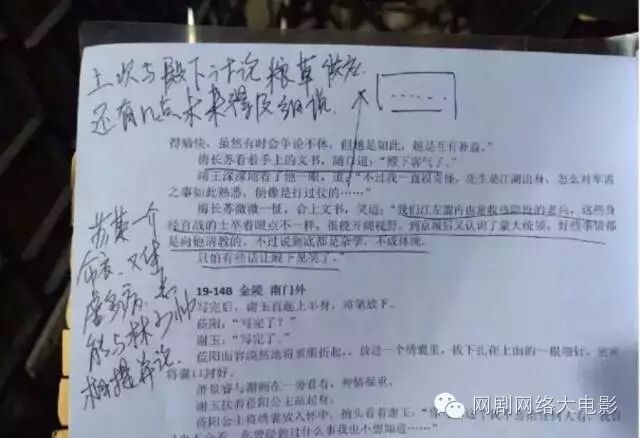 上次与殿下讨论粮草储备
还有几点未来得及细说
得痛快，虽然有时会争论不休，但越是如此，越是互有补益。”
梅长苏看着手上的文书，随口道：“殿下客气了。”
靖王深深地看了他一眼，道：“不过我一直很奇怪，先生是江湖出身，怎么对军需
之事如此熟悉，倒像是打过仗的……”
梅长苏微微一怔，合上文书，笑道：“我们江左盟内也常收些退役的老兵，这些身
经百战的士卒看眼点不一样，很能开阔视野。到京城后又认识了蒙大统领，好些事情都
是向他请教的。不过说到底都是杂学，不成体统。
只怕有些话让殿下见笑了。”
苏某一介
布衣，又体
虚多病，怎
能与林少帅
相提并论
19-14B 金陵 南门外
写完后，谢玉直起上半身，将笔放下。
莅阳：“写完了？”
谢玉：“写完了。”
莅阳面容漠然地将素绢折起，放进一个绣囊里，拔下扎在上面的一根细针，密密
将囊口封好。
萧景睿与谢弼在一旁看着，神情凝重。
谢玉扶着莅阳公主站起身。
莅阳公主将绣囊放入怀中，抬头看着谢玉：“你
网剧网络大电影